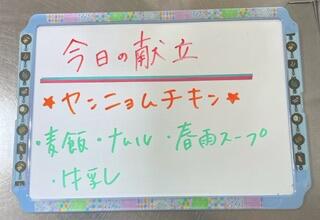 今日の献立
★ヤンニョムチキン★
・麦飯・ナムル・春雨スープ
・牛乳